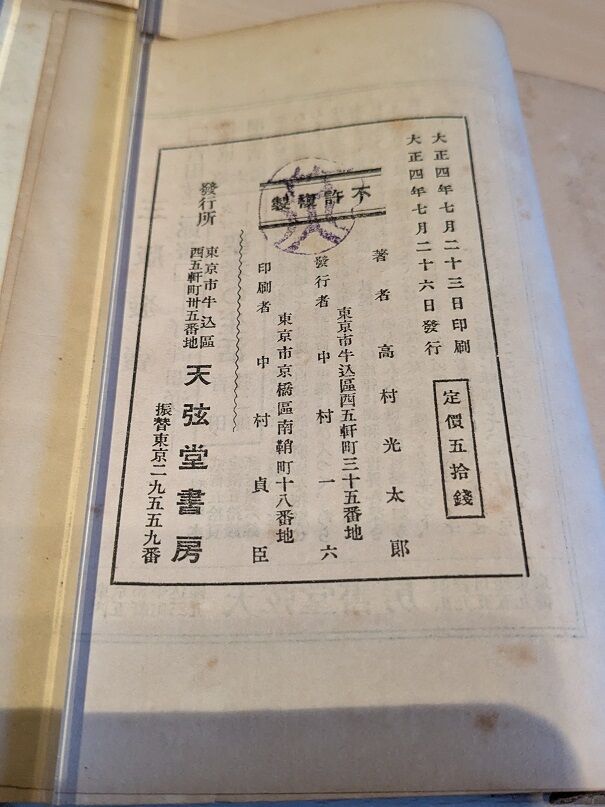 大正四年七月二十三日印刷
大正四年七月二十六日發行
定價五拾錢
不許複製
著者 高村光太郎
東京市牛込區西五軒町三十五番地
發行者 中村一六
東京市京橋區南鞘町十八番地
印刷者 中村貞臣
發行所
東京市牛込區
西五軒町卅五番地
天弦堂書房
振替東京二九五五九番